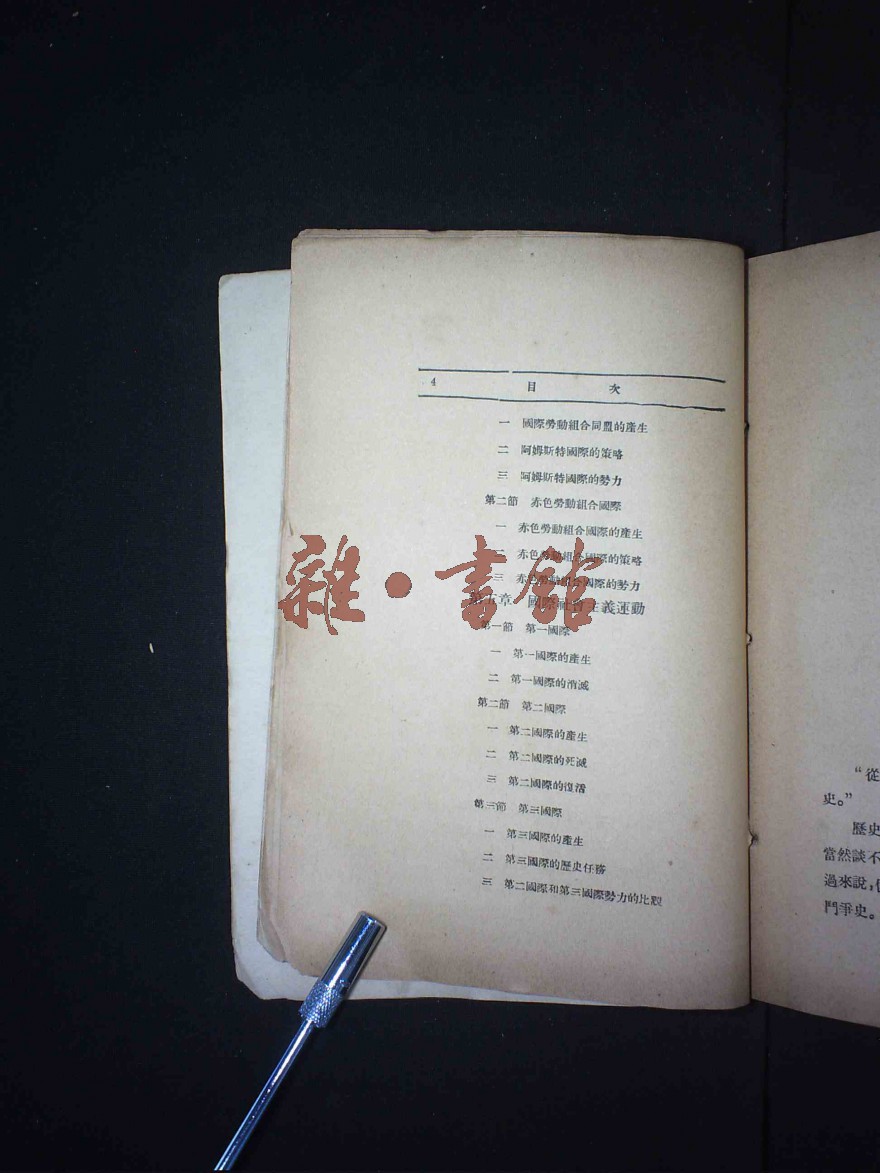 4 目 次
一 國際勞動組合同盟的產生
二 阿姆斯特國際的策略
三 阿姆斯特國際的勢力
第二節 赤色勞動組合國際
一 赤色勞動組合國際的產生
二 赤色勞動組合國際的策略
三 赤色勞動組合國際的勢力
第五章 國際社會主義運動
第一節 第一國際
一 第一國際的產生
二 第一國際的消滅
第二節 第二國際
一 第二國際的產生
二 第二國際的死滅
三 第二國際的復活
第三節 第三國際
一 第三國際的產生
二 第三國際的歷史任務
三 第二國際和第三國際勢力的比較
雜·書館
“從
史。”
歷史
當然談不
過來說,
鬥爭史。